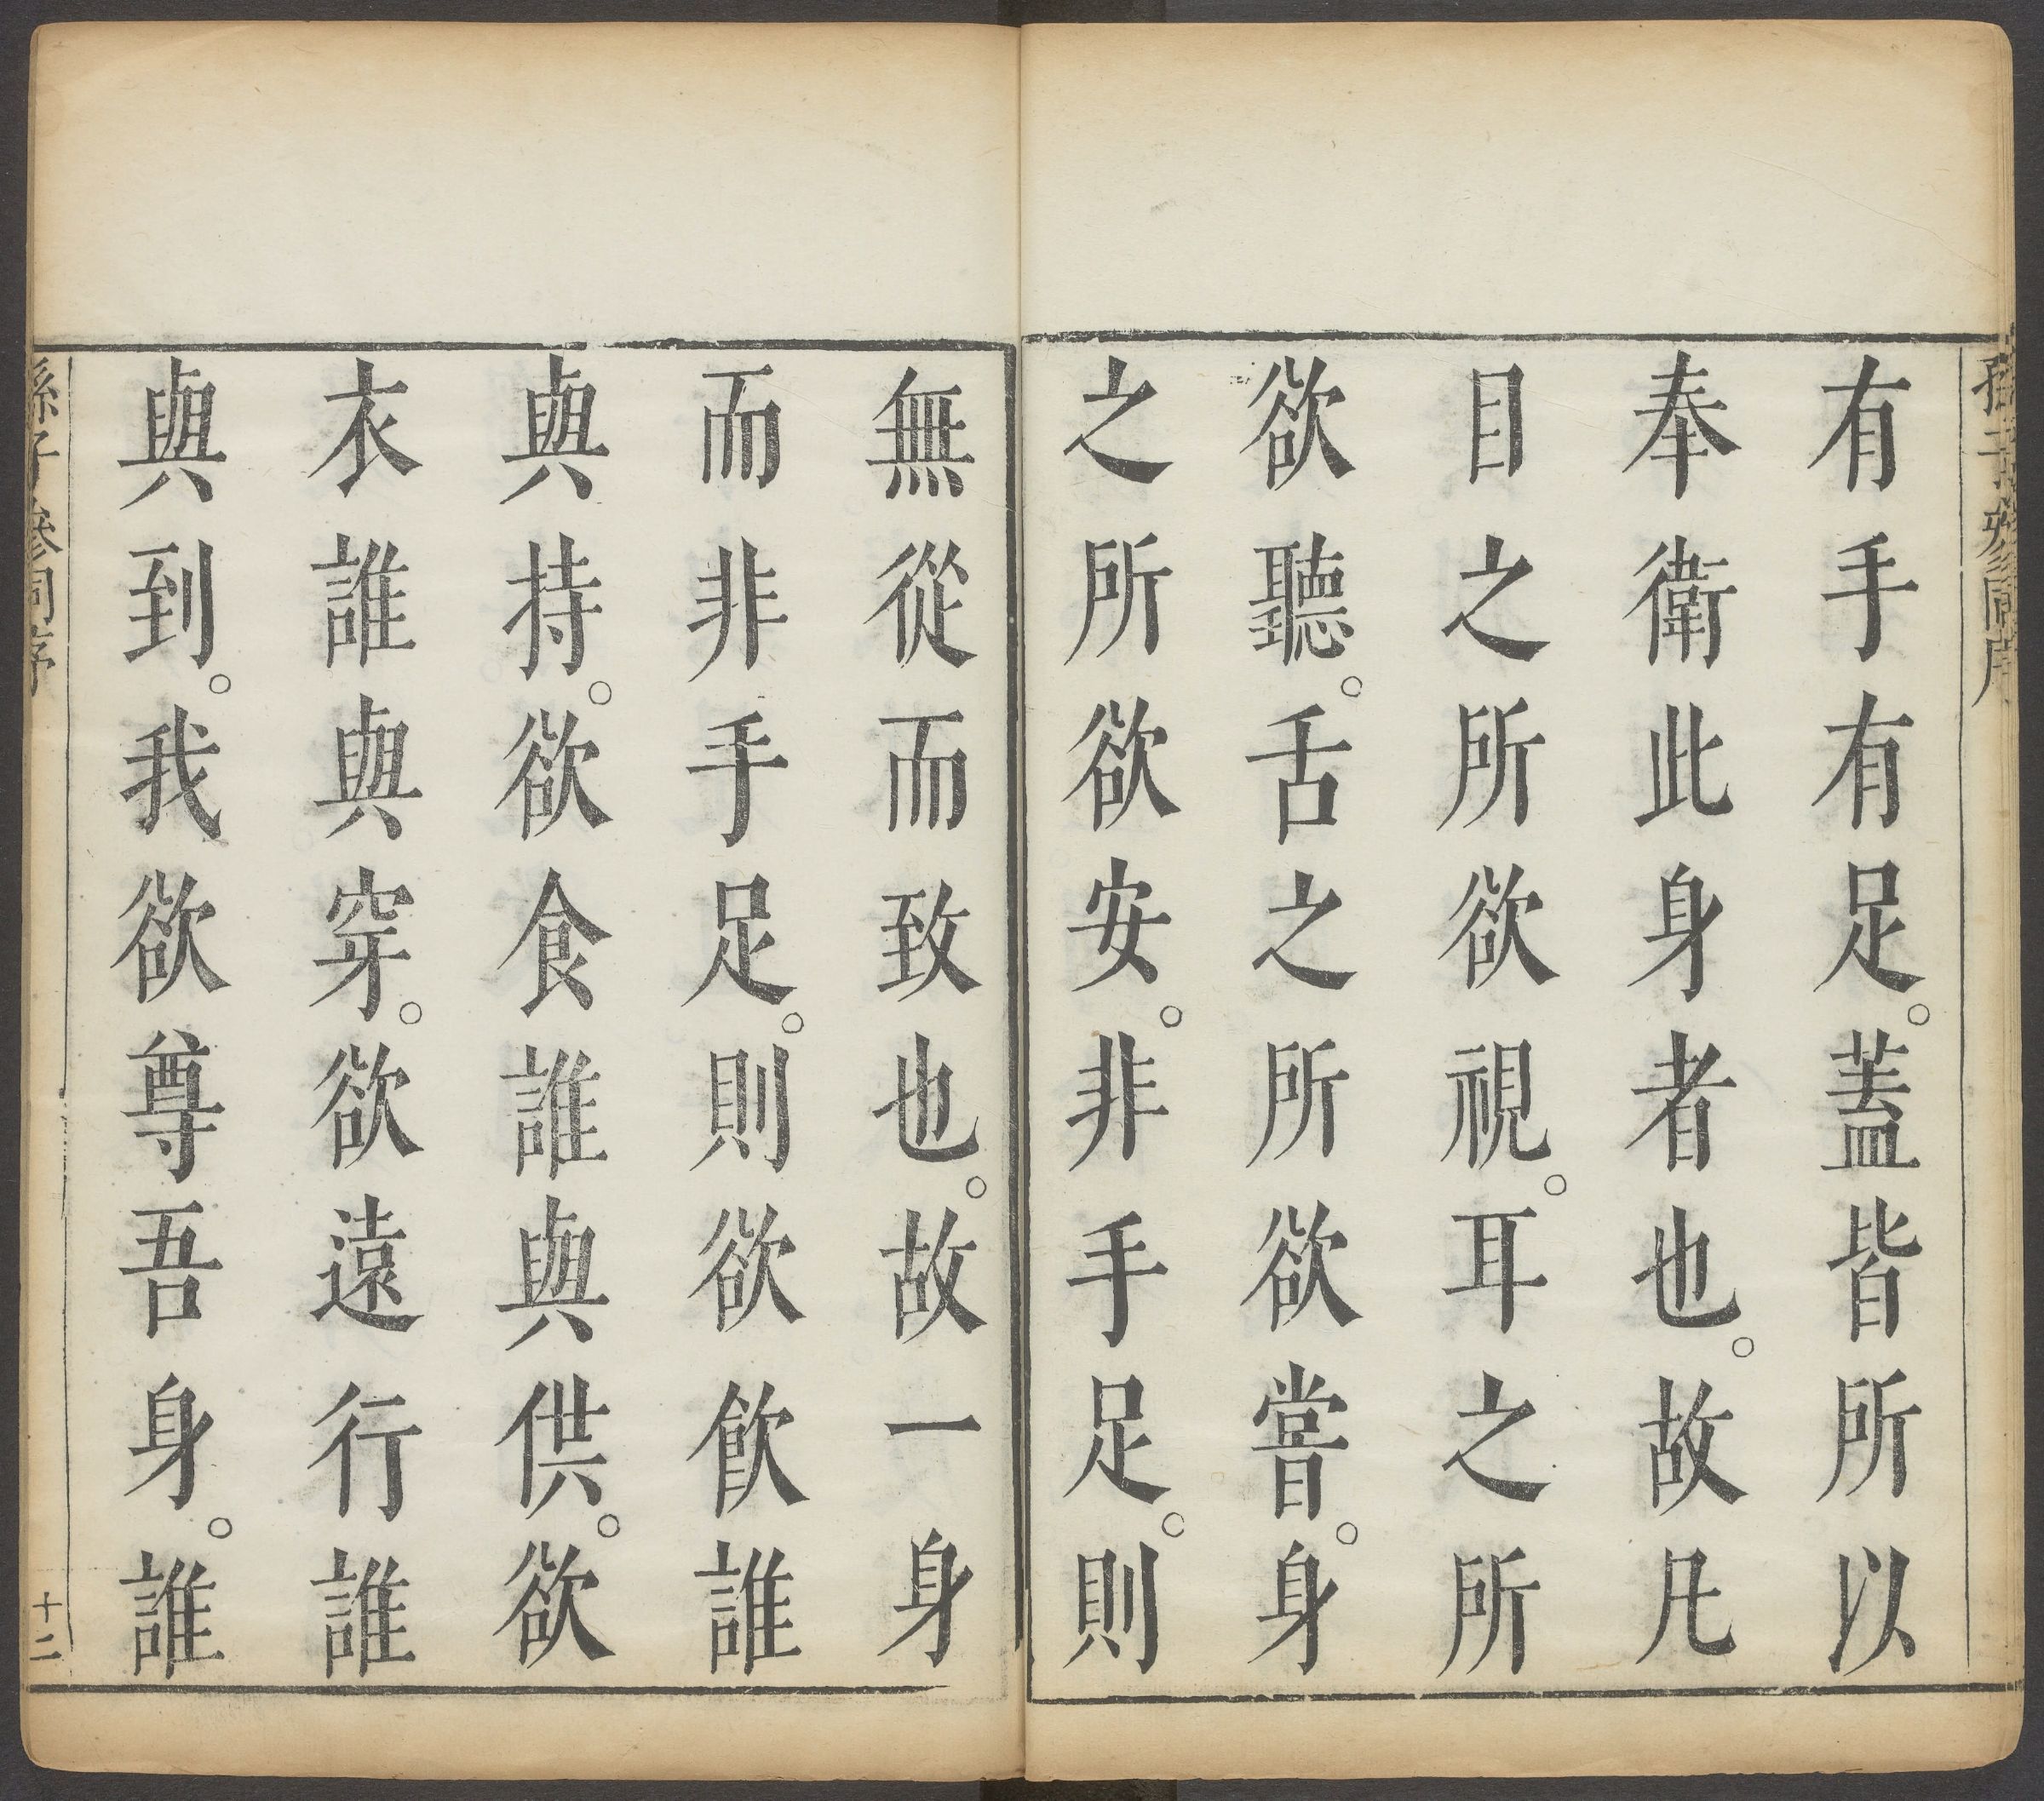 孫子參同序
有手有足。蓋皆所以
奉衛此身者也。故凡
目之所欲視。耳之所
欲聽。舌之所欲嘗。身
之所欲安。非手足。則
無從而致也。故一身
而非手足。則欲飲誰
與持。欲食誰與供。欲
衣誰與穿。欲遠行誰
與到。我欲尊吾身。誰
孫子參同序
十二